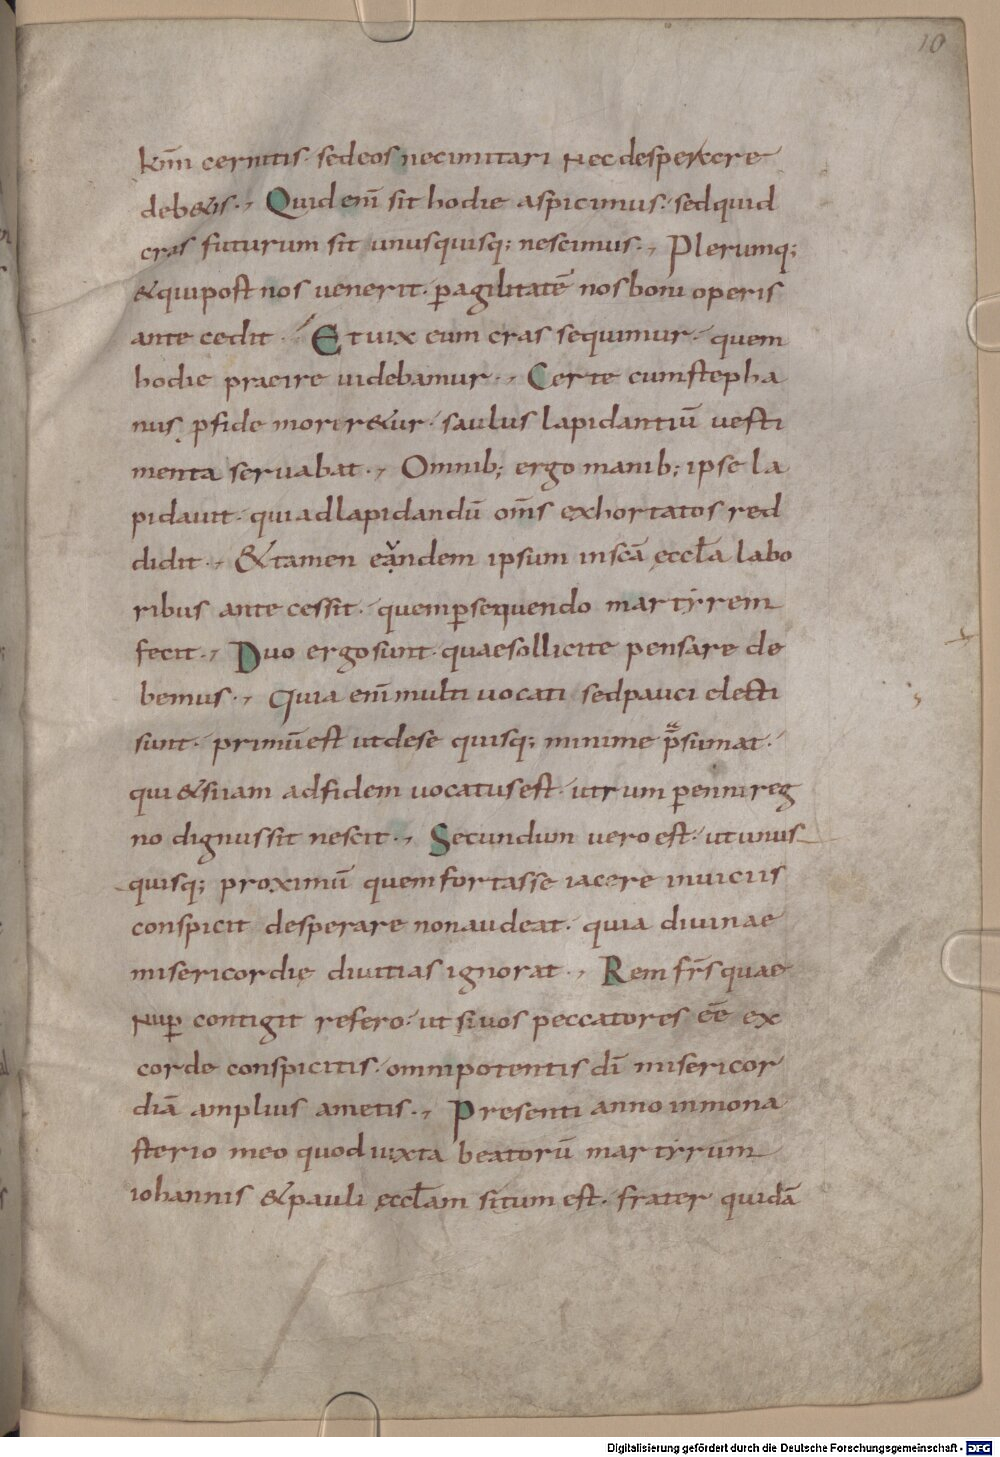 10
km̄ cernitis· sedeos necimitari nec desperare
deb&is·, Quid enī sit hodie aspicimus· sedquid
cras futurum sit unusquisq; nescimus·, Plerumq;
&quipost nos uenerit· ꝑagilitatē nosboni operis
ante cedit· Et uix eum cras sequimur· quem
hodie praeire uidebamur·, Certe cumstepha
nus ꝓfide morer&ur· saulus lapidantiū uesti
menta seruabat·, Omnib; ergo manib; ipse la
pidauit· quiadlapidandū om̄s exhortatos red
didit·, &tamen eandem ipsum inscā ęccła labo
ribus ante cessit· quemꝑsequendo martyrem
fecit·, Duo ergo sunt· quaesollicite pensare de
bemus·, Quia enī multi uocati sedpauci electi
sunt· primūest utdese quisq; minime p̄sumat·
qui &siiam adfidem uocatusest· utrum ꝑenni reg
no dignussit nescit·, Secundum uero est· utunus
quisq; proximū quemfortasse iacere inuiciis
conspicit desperare nonaudeat· quia diuinae
misericordię diuitias ignorat·, Rem fr̄s quae
nuꝑ contigit refero· ut siuos peccatores eē ex
corde conspicitis· omnipotentis dī misericor
diā amplius ametis·, Presenti anno inmona
sterio meo quod iuxta beatorū martyrum
iohannis &pauli ęccłam situm est· frater quidā
Digitalisierung gefördert durch die Deutsche Forschungsgemeinschaft - DFG